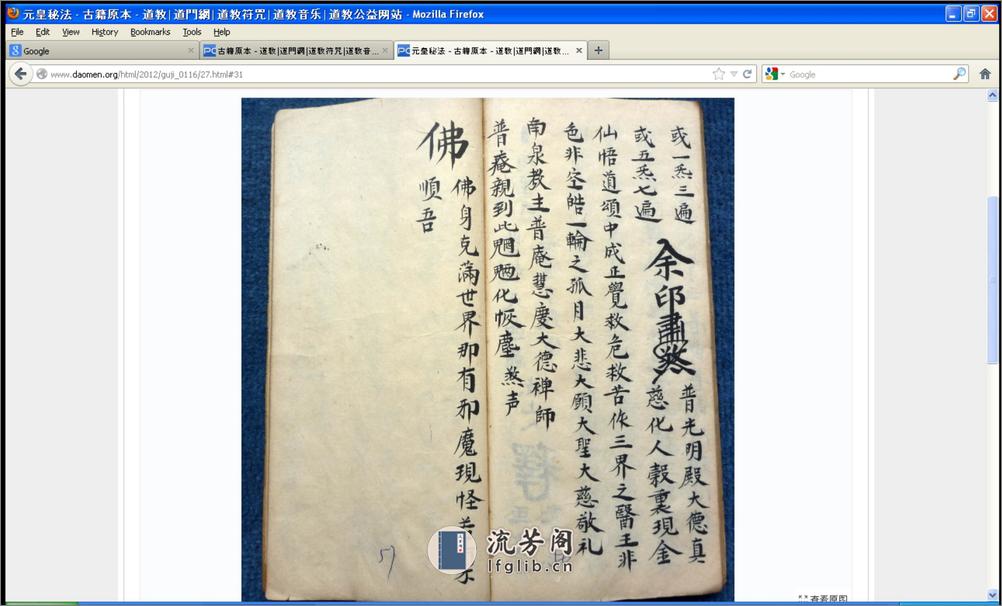 元皇秘法 - 古籍原本 - 道教|道門網|道教符咒|道教音乐|道教公益网站 - Mozilla Firefox
File Edit View History Bookmarks Tools Help
Google
古籍原本 - 道教|道門網|道教符咒|道教音...
元皇秘法 - 古籍原本 - 道教|道門網|道教...
www.daomen.org/html/2012/guji_0116/27.html#31
Google
或一炁三遍
或五炁七遍
余印肅煞
普光明殿大德真
慈化人穀裏現金
仙悟道頌中成正覺救危救苦作三界之醫王非
色非空皓一輪之孤月大悲大願大聖大慈敬礼
南泉教主普庵慧慶大德禅師
普庵親到此魍魎化恢塵 煞声
佛
佛身克滿世界那有邪魔現怪
順吾
57
流芳阁
lfglib.cn
查看原图